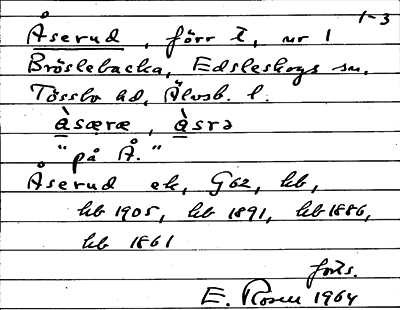 1-3
Åserud, förr t, nr 1
Bröslebacka, Edsleskogs sn.
Tössbo hd, Älvsb. l.
àsæræ, àsrə
"på Å."
Åserud ek, G62, kb,
kb 1905, kb 1891, kb 1886,
kb 1861
forts.
E. Rosen 1964